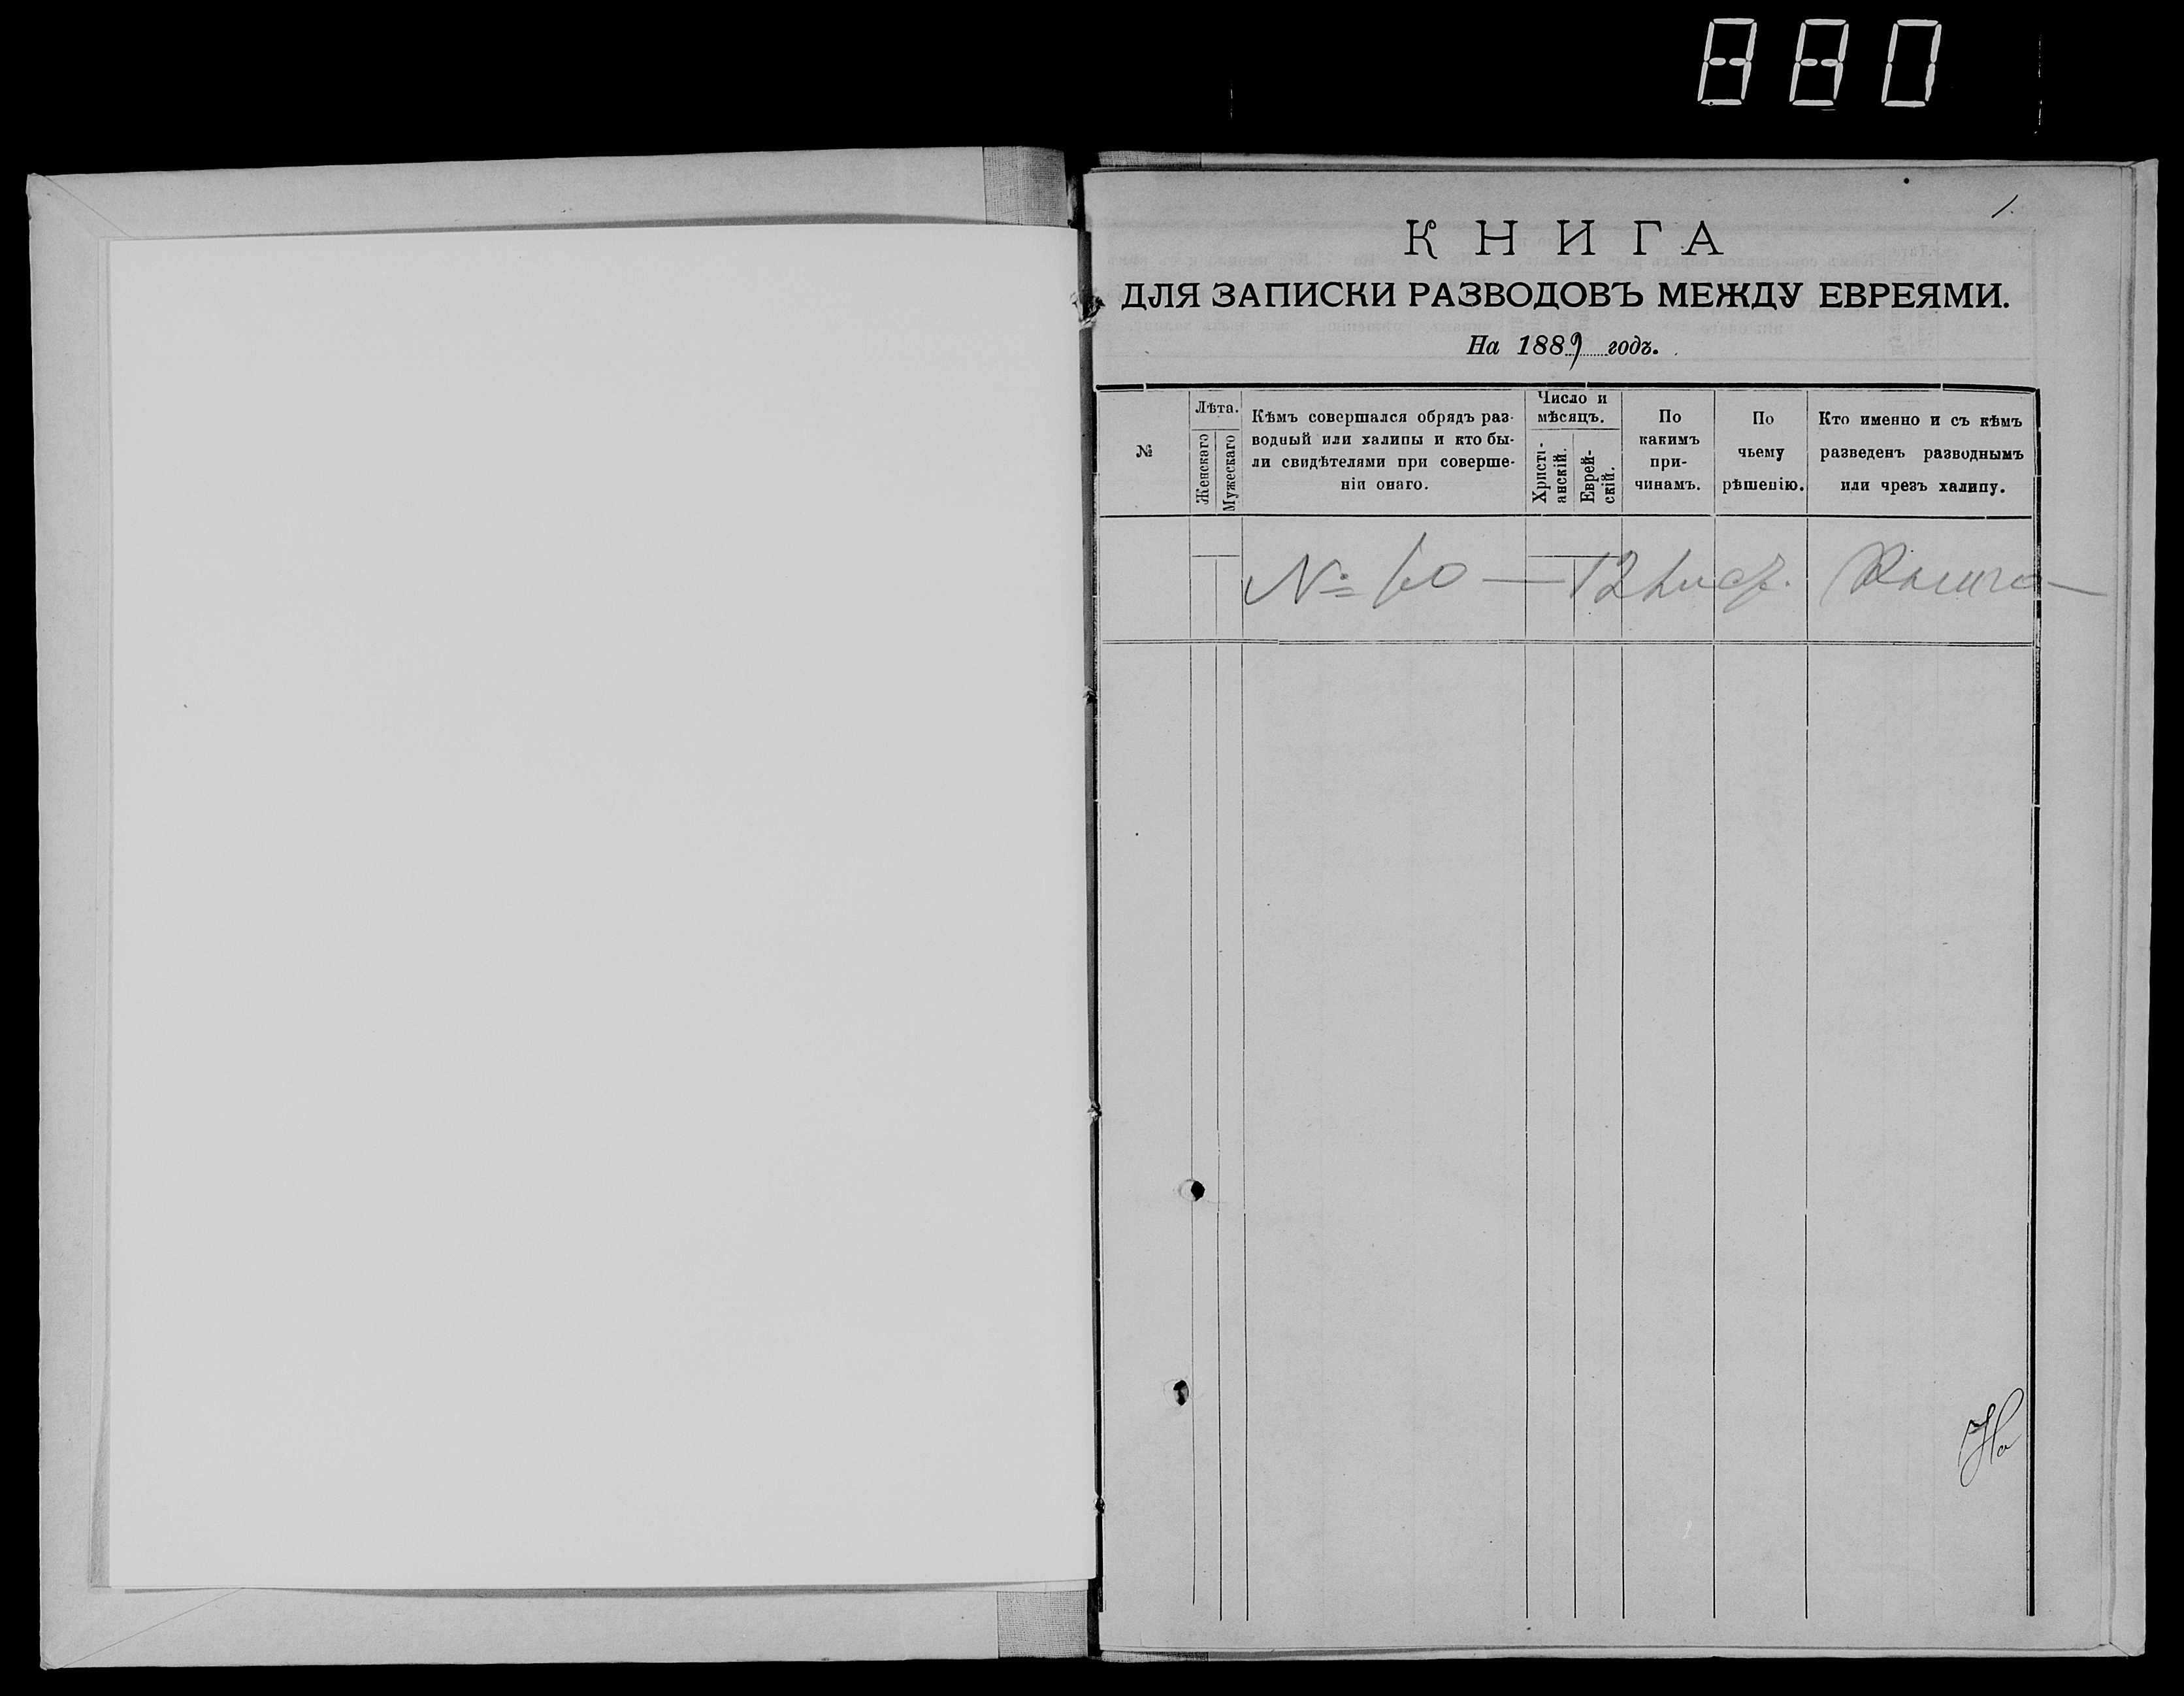 880
1.
КНИГА
ДЛЯ ЗАПИСКИ РАЗВОДОВЪ МЕЖДУ ЕВРЕЯМИ.
На 1889 годъ.
№
Лѣта.
Женскаго
Мужескаго
Кѣмъ совершался обрядъ раз-
водный или халипы и кто бы-
ли свидѣтелями при соверше-
ніи онаго.
Число и
мѣсяцъ.
Христі-
анскій.
Еврей-
скій.
По
какимъ
при-
чинамъ.
По
чьему
рѣшенію.
Кто именно и съ кѣмъ
разведенъ разводнымъ
или чрезъ халипу.
№ 60 — 12
На